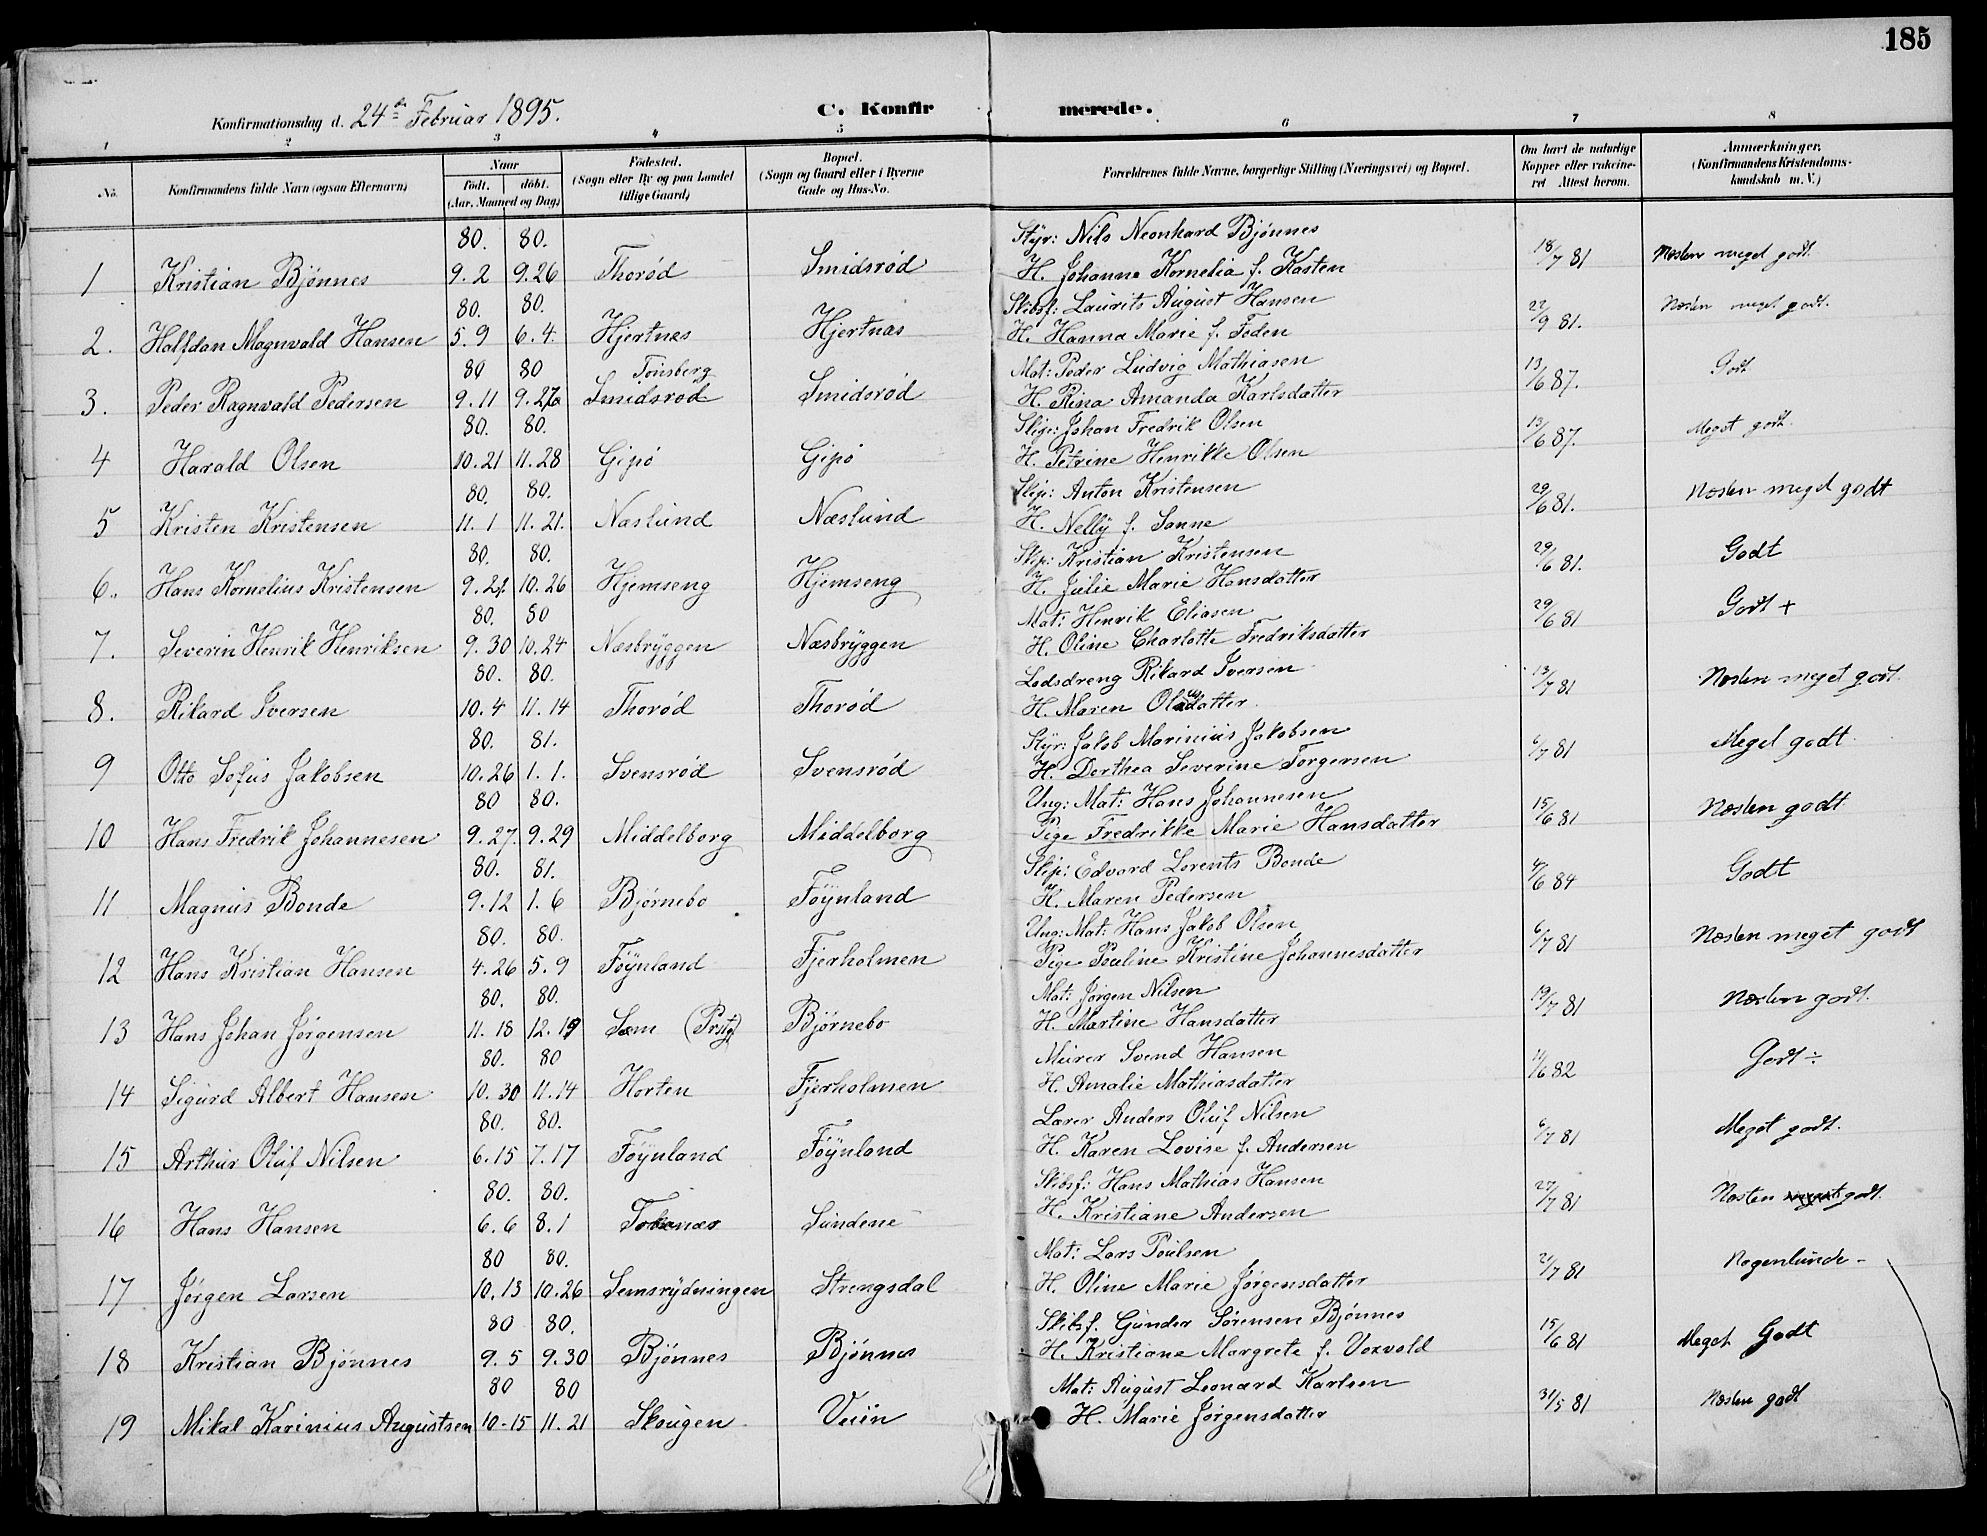 185
Konfirmationsdag d. 24de Februar 1895. C. Konfirmerede.
1 2 3 4 5 6 7 8
No. Konfirmandens fulde Navn (ogsaa Efternavn) Naar født. døbt. (Aar. Maaned og Dag) Fødested. (Sogn eller By og paa Landet tillige Gaard) Bopæl. (Sogn og Gaard eller i Byerne Gade og Hus-No. Forældrenes fulde Navne, borgerlige Stilling (Næringsvei) og Bopæl. Om havt de naturlige Kopper eller vakcineret Attest herom. Anmærkninger. (Konfirmandens Kristendomskundskab m. V.)
80. 80. Styr: Nils Neonhard Bjønnes
1 Kristian Bjønnes 9. 2 9. 26 Thorød Smidsrød H. Johanne Kornelia f. Kasten 18/7 81 Næsten meget godt.
80. 80. Skibsf: Laurits August Hansen
2. Halfdan Magnvald Hansen 5. 9 6. 4. Hjertnæs Hjertnæs H. Hanna Marie f. Foden 22/9 81. Næsten meget godt.
80 80 Tønsberg Mat: Peder Ludvig Mathiasen
3. Peder Ragnvald Pedersen 9. 11 9. 26 Smidsrød Smidsrød H. Rina Amanda Karlsdatter 13/6 87. Godt
80. 80. Skip: Johan Fredrik Olsen
4 Harald Olsen 10. 21 11. 28 Gipø Gipø H. Petrine Henrikke Olsen 13/6 87. Meget godt.
80. 80. Skip: Anton Kristensen
5 Kristen Kristensen 11. 1 11. 21. Næslund Næslund H. Nelly f. Sanne 29/6 81. Næsten meget godt
80. 80. Skip: Kristian Kristensen
6. Hans Kornelius Kristensen 9. 21. 10. 26 Hjemseng Hjemseng H. Julie Marie Hansdatter 29/6 81. Godt
80. 80 Mat: Henrik Eliasen
7. Severin Henrik Henriksen 9. 30 10. 24 Næsbryggen Næsbryggen H. Oline Charlotte Fredriksdatter 29/6 81 Godt +
80. 80. Lodsdreng Rikard Iversen
8. Rikard Iversen 10. 4 11. 14 Thorød Thorød H. Maren Olsdatter. 13/7 81 Næsten meget godt.
80. 81. Styr: Jakob Marinius Jakobsen
9 Otto Sofus Jakobsen 10. 26 1. 1. Svensrød Svensrød H. Dorthea Severine Torgersen 6/7 81 Meget godt.
80 80. Ung: Mat: Hans Johannesen
10 Hans Fredrik Johannesen 9. 27. 9. 29 Middelborg Middelborg Pige Fredrikke Marie Hansdatter 15/6 81 Næsten godt
80. 81. Skip: Edvard Lorents Bonde
11 Magnus Bonde 9. 12 1. 6 Bjørnebo Føynland H. Maren Pedersen 4/6 84 Godt
80. 80. Ung: Mat: Hans Jakob Olsen
12 Hans Kristian Hansen 4. 26 5. 9 Føynland Fjerholmen Pige Pauline Kristine Johannesdatter 6/7 81 Næsten meget godt
80. 80. Mat: Jørgen Nilsen
13 Hans Johan Jørgensen 11. 18 12. 19 Sæm (Prstg) Bjørnebo H. Martine Hansdatter 19/7 81 Næsten godt.
80. 80 Murer Svend Hansen
14 Sigurd Albert Hansen 10. 30 11. 14 Horten Fjerholmen H. Amalie Mathiasdatter 11/6 82 Godt ÷
80. 80. Lærer Anders Oluf Nilsen
15 Arthur Oluf Nilsen 6. 15 7. 17 Føynland Føynland H. Karen Lovise f. Andersen 6/7 81 Meget godt.
80. 80. Skibsf: Hans Mathias Hansen
16 Hans Hansen 6. 6 8. 1 Tokenæs Sundene H. Kristiane Andersen 27/7 81 Næsten meget godt.
80 80. Mat: Lars Poulsen
17 Jørgen Larsen 10. 13 10. 26 Semsrydningen Strengsdal H. Oline Marie Jørgensdatter 21/7 81 Nogenlunde -
80 80. Skibsf. Gunder Sørensen Bjønnes
18 Kristian Bjønnes 9. 5 9. 30 Bjønnes Bjønnes H. Kristiane Margrete f. Voxvold 15/6 81 Meget Godt
80 80 Mat: August Leonard Karlsen
19 Mikal Karinius Augustsen 10-15 11. 21 Skougen Veiin H. Marie Jørgensdatter 31/5 81 Næsten godt